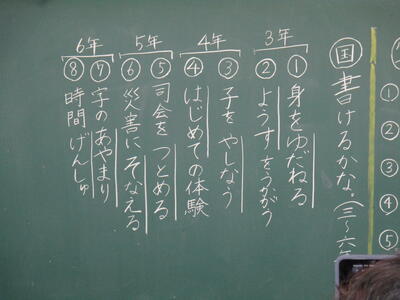 国 書けるかな。(三〜六年
3年
① 身をゆだねる
② ようすをうかがう
4年
③ 子をやしなう
④ はじめての体験
5年
⑤ 司会をつとめる
⑥ 災害にそなえる
6年
⑦ 字のあやまり
⑧ 時間げんしゅ
①
②
③
④
⑤